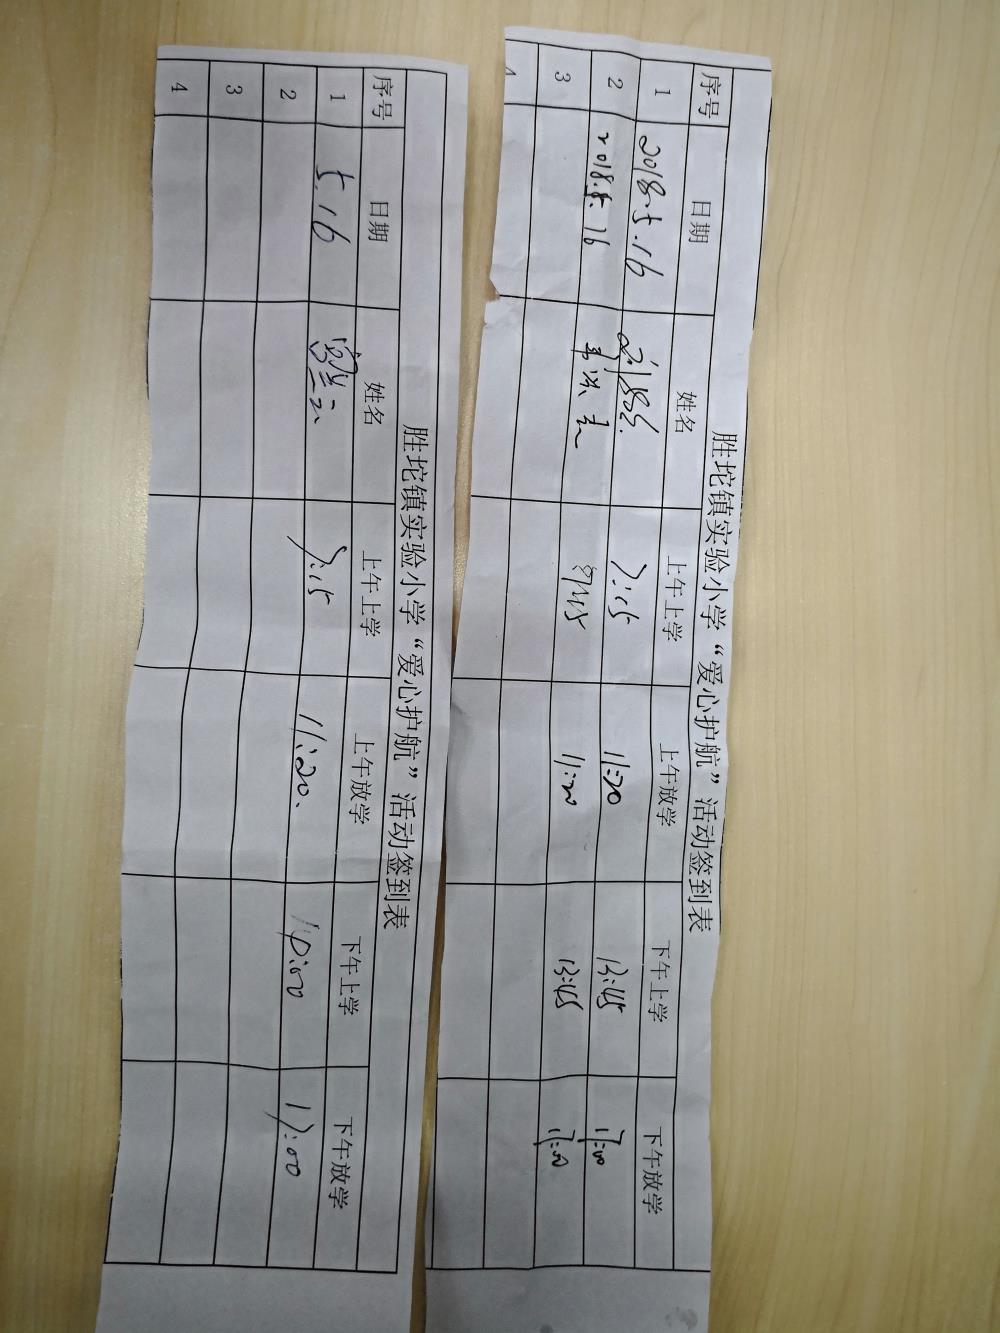 胜坨镇实验小学“爱心护航”活动签到表
序号 日期 姓名 上午上学 上午放学 下午上学 下午放学
1 2018.5.16 7:15 11:20 13:45 17:00
2 2018.5.16 11:20 13:45 17:00
3
胜坨镇实验小学“爱心护航”活动签到表
序号 日期 姓名 上午上学 上午放学 下午上学 下午放学
1 5.16 7:15 11:20 14:00 17:00
2
3
4